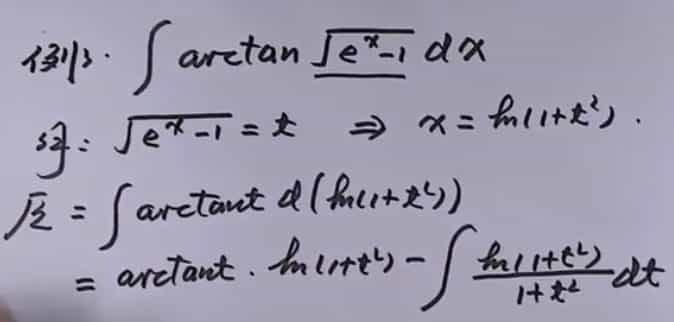 例3. ∫ arctan √(eˣ-1) dx
解: √(eˣ-1) = t ⇒ x = ln(1+t²).
原 = ∫ arctant d(ln(1+t²))
= arctant · ln(1+t²) - ∫ ln(1+t²)/(1+t²) dt